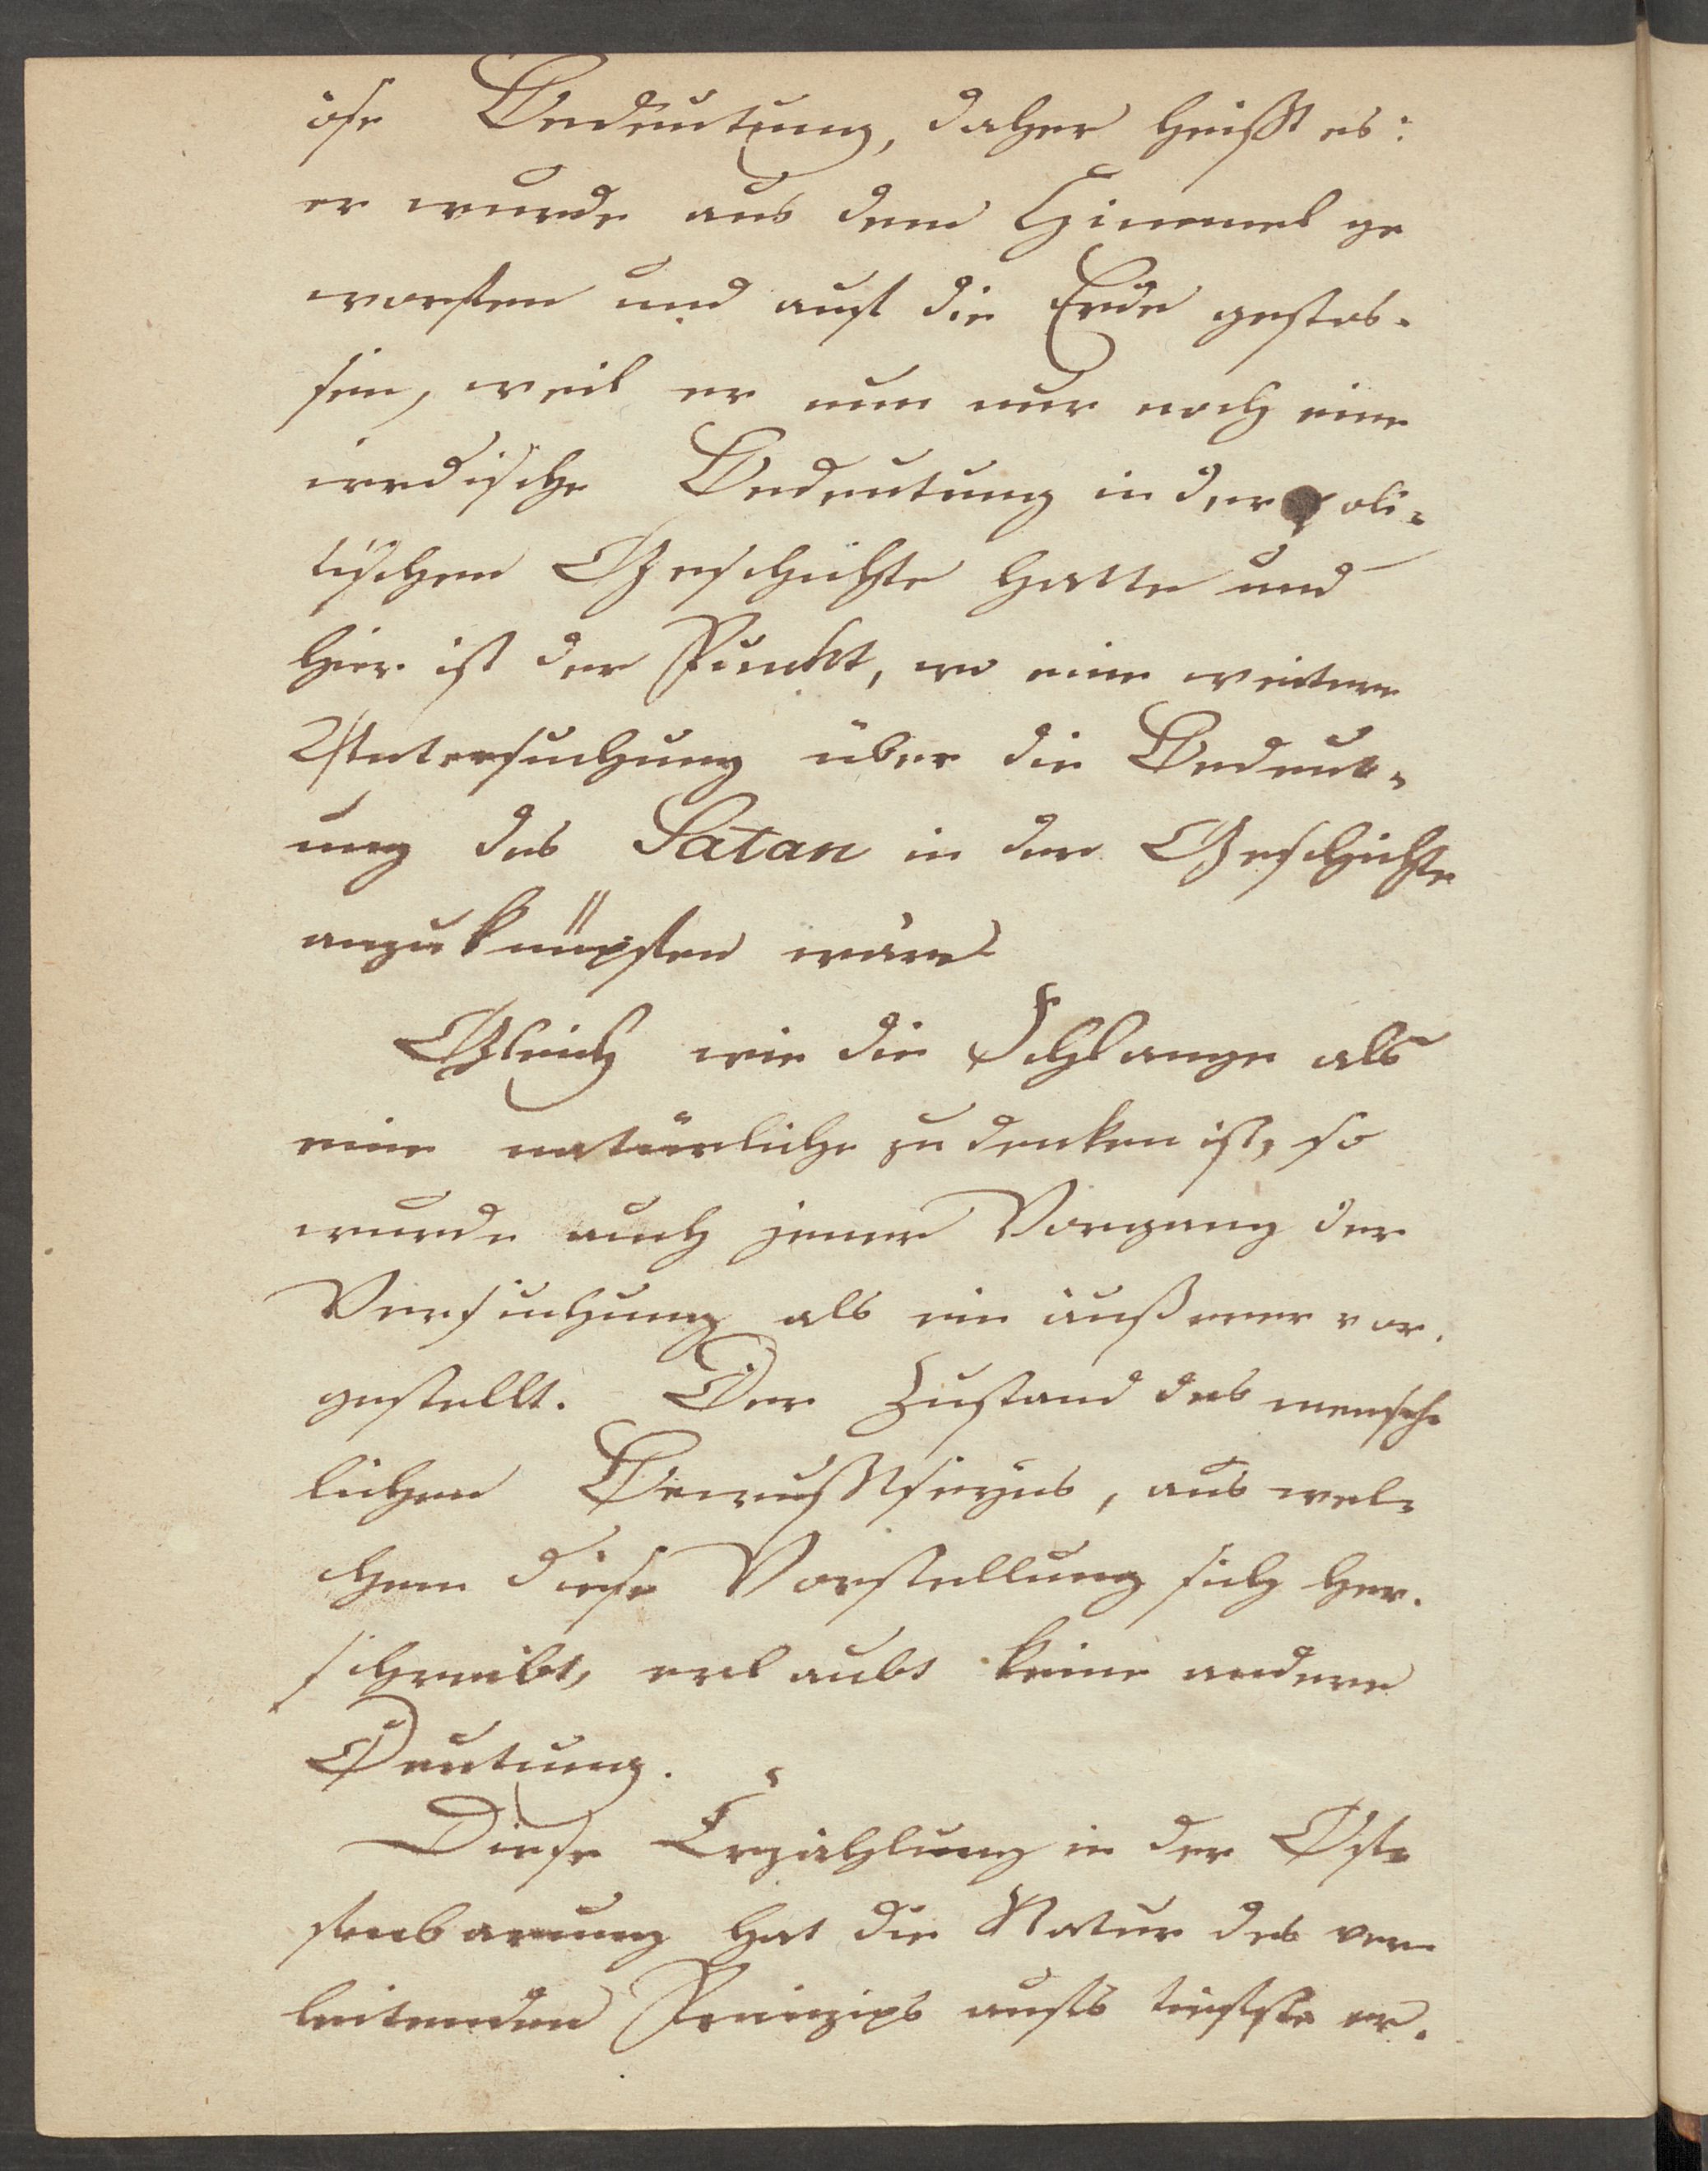 öse Bedeutung, daher heißt es:
er wurde aus dem Himmel ge
worfen und auf die Erde gestos-
sen, weil er nun nur noch eine
irrdische Bedeutung in der poli-
tischen Geschichte hatte und
hier ist der Punkt, wo eine weitere
Untersuchung über die Bedeut-
ung des Satan in der Geschichte
anzuknüpfen wäre
Gleich wie die Schlange als
eine natürliche zu denken ist, so
wurde auch jener Vorgang der
Versuchung als ein äußerer vor-
gestellt. Der Zustand des mensch-
lichen Bewußtseyns, aus wel-
chem diese Vorstellung sich her-
schreibt, erlaubt keine andere
Deutung.
Diese Erzählung in der Of-
fenbarung hat die Natur des ver-
leitenden Prinzips aufs tiefste er-